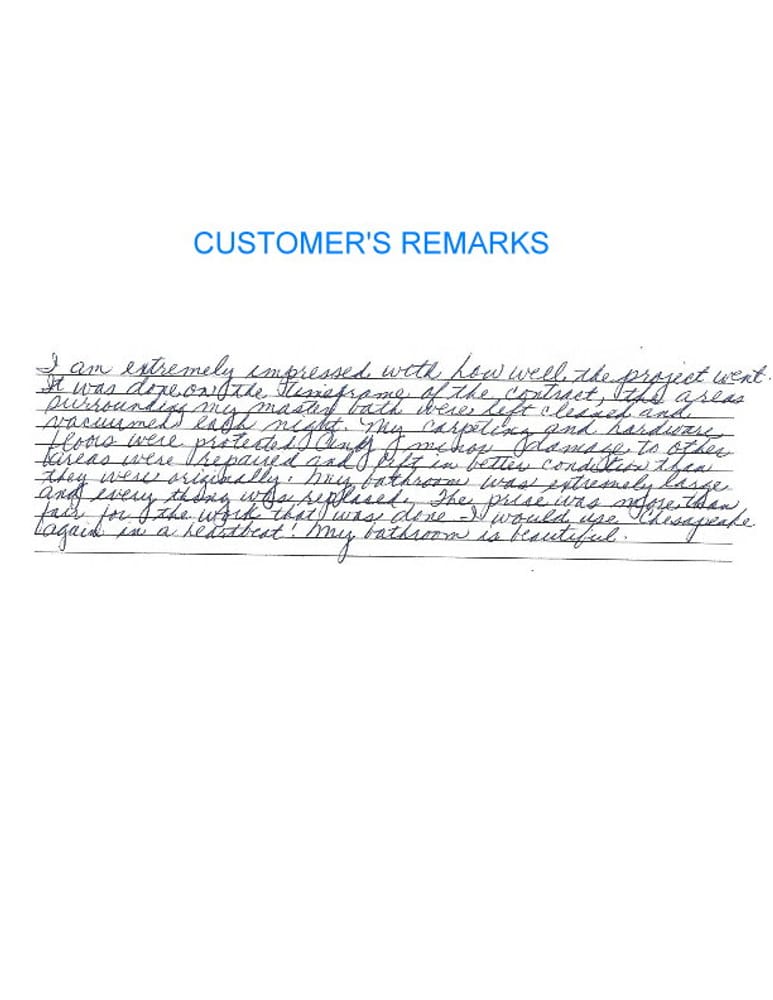 CUSTOMER'S REMARKS
I am extremely impressed with how well the project went.
It was done on the timeframe of the contract, the areas
surrounding my master bath were left cleaned and
vacuumed each night. My carpeting and hardware
floors were protected. Any minor damage to other
areas were repaired and left in better condition than
they were originally. My bathroom was extremely large
and every thing was replaced. The price was more than
fair for the work that was done - I would use Chesapeake
again in a heartbeat! My bathroom is beautiful.